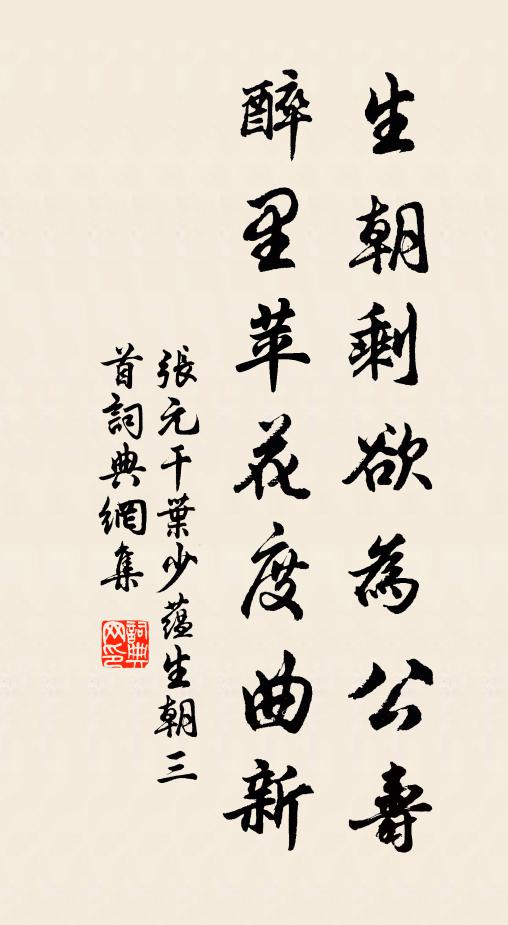 生朝剩欲為公壽
醉里苹花度曲新
張元干葉少蘊生朝三
首詞典網集
詞典
网印